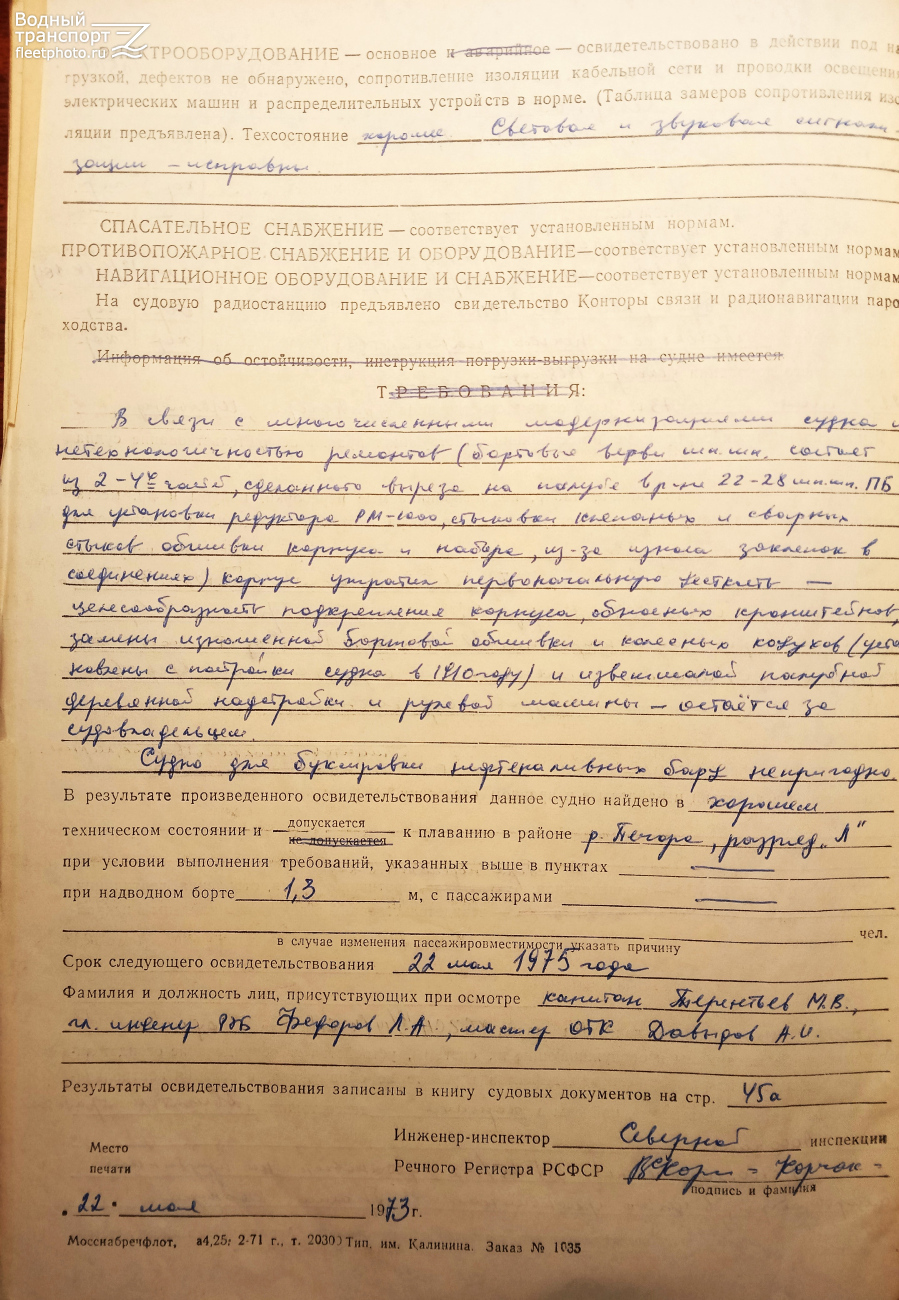 Водный
транспорт
fleetphoto.ru
ЭЛЕКТРООБОРУДОВАНИЕ — основное и аварийное — освидетельствовано в действии под на-
грузкой, дефектов не обнаружено, сопротивление изоляции кабельной сети и проводки освещения
электрических машин и распределительных устройств в норме. (Таблица замеров сопротивления изо-
ляции предъявлена). Техсостояние хорошее. Световая и звуковая сигнали-
зации — исправны.
СПАСАТЕЛЬНОЕ СНАБЖЕНИЕ — соответствует установленным нормам.
ПРОТИВОПОЖАРНОЕ СНАБЖЕНИЕ И ОБОРУДОВАНИЕ—соответствует установленным нормам
НАВИГАЦИОННОЕ ОБОРУДОВАНИЕ И СНАБЖЕНИЕ—соответствует установленным нормам
На судовую радиостанцию предъявлено свидетельство Конторы связи и радионавигации паро-
ходства.
Информация об остойчивости, инструкция погрузки-выгрузки на судне имеется
ТРЕБОВАНИЯ:
В связи с многочисленными модернизациями судна и
нетехнологичностью ремонтов (бортовые ветви шп.шп. состоят
из 2-4х частей, сделанного выреза на палубе в р-не 22-28 шп.шп. ПБ
для установки редуктора РМ-1000, стыковки клепаных и сварных
стыков обшивки корпуса и набора, из-за износа заклепок в
соединениях) корпус утратил первоначальную жесткость —
целесообразность подкрепления корпуса, обносных кронштейнов,
замены изношенной бортовой обшивки и колесных кожухов (уста
новлены с постройки судна в 1910 году) и изветшалой палубной
деревянной надстройки и рулевой машины — остаётся за
судовладельцем.
Судно для буксировки нефтеналивных барж непригодно.
В результате произведенного освидетельствования данное судно найдено в хорошем
техническом состоянии и допускается
не допускается к плаванию в районе р. Печора, разряд „Л"
при условии выполнения требований, указанных выше в пунктах —
при надводном борте 1,3 м, с пассажирами —
чел.
в случае изменения пассажировместимости указать причину
Срок следующего освидетельствования 22 мая 1975 года
Фамилия и должность лиц, присутствующих при осмотре капитан Терентьев М.В.,
гл. инженер РЭБ Федоров Л.А., мастер ОТК Давыдов А.И.
Результаты освидетельствования записаны в книгу судовых документов на стр. 45а
Инженер-инспектор Северной инспекции
Место
печати
Речного Регистра РСФСР Корчак
подпись и фамилия
„22" мая 1973 г.
Мосснабречфлот, а4,25; 2-71 г., т. 20300 Тип. им. Калинина. Заказ № 1035